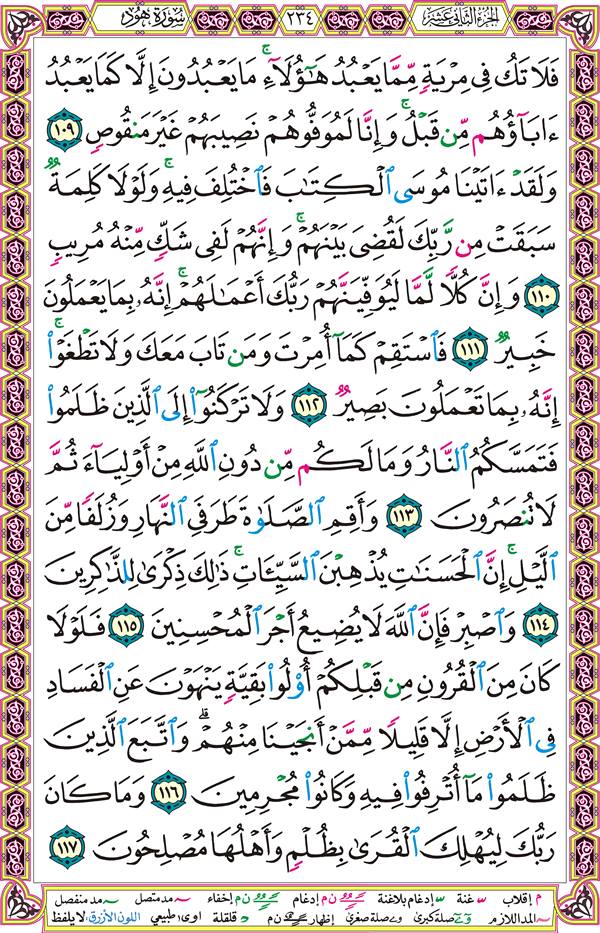 الجزء الثاني عشر ٢٣٤ سورة هود
فَلَا تَكُ فِى مِرْيَةٍ مِّمَّا يَعْبُدُ هَٰٓؤُلَآءِ ۚ مَا يَعْبُدُونَ إِلَّا كَمَا يَعْبُدُ
ءَابَآؤُهُم مِّن قَبْلُ ۚ وَإِنَّا لَمُوَفُّوهُمْ نَصِيبَهُمْ غَيْرَ مَنقُوصٍ ١٠٩
وَلَقَدْ ءَاتَيْنَا مُوسَى ٱلْكِتَٰبَ فَٱخْتُلِفَ فِيهِ ۚ وَلَوْلَا كَلِمَةٌ
سَبَقَتْ مِن رَّبِّكَ لَقُضِىَ بَيْنَهُمْ ۚ وَإِنَّهُمْ لَفِى شَكٍّ مِّنْهُ مُرِيبٍ
١١٠ وَإِنَّ كُلًّا لَّمَّا لَيُوَفِّيَنَّهُمْ رَبُّكَ أَعْمَٰلَهُمْ ۚ إِنَّهُۥ بِمَا يَعْمَلُونَ
خَبِيرٌ ١١١ فَٱسْتَقِمْ كَمَآ أُمِرْتَ وَمَن تَابَ مَعَكَ وَلَا تَطْغَوْا۟ ۚ
إِنَّهُۥ بِمَا تَعْمَلُونَ بَصِيرٌ ١١٢ وَلَا تَرْكَنُوٓا۟ إِلَى ٱلَّذِينَ ظَلَمُوا۟
فَتَمَسَّكُمُ ٱلنَّارُ وَمَا لَكُم مِّن دُونِ ٱللَّهِ مِنْ أَوْلِيَآءَ ثُمَّ
لَا تُنصَرُونَ ١١٣ وَأَقِمِ ٱلصَّلَوٰةَ طَرَفَىِ ٱلنَّهَارِ وَزُلَفًا مِّنَ
ٱلَّيْلِ ۚ إِنَّ ٱلْحَسَنَٰتِ يُذْهِبْنَ ٱلسَّيِّـَٔاتِ ۚ ذَٰلِكَ ذِكْرَىٰ لِلذَّٰكِرِينَ
١١٤ وَٱصْبِرْ فَإِنَّ ٱللَّهَ لَا يُضِيعُ أَجْرَ ٱلْمُحْسِنِينَ ١١٥ فَلَوْلَا
كَانَ مِنَ ٱلْقُرُونِ مِن قَبْلِكُمْ أُو۟لُوا۟ بَقِيَّةٍ يَنْهَوْنَ عَنِ ٱلْفَسَادِ
فِى ٱلْأَرْضِ إِلَّا قَلِيلًا مِّمَّنْ أَنجَيْنَا مِنْهُمْ ۗ وَٱتَّبَعَ ٱلَّذِينَ
ظَلَمُوا۟ مَآ أُتْرِفُوا۟ فِيهِ وَكَانُوا۟ مُجْرِمِينَ ١١٦ وَمَا كَانَ
رَبُّكَ لِيُهْلِكَ ٱلْقُرَىٰ بِظُلْمٍ وَأَهْلُهَا مُصْلِحُونَ ١١٧
م إقلاب غنة إدغام بلاغنة ن م إدغام ن م إخفاء مد متصل مد منفصل
المد اللازم صلة كبرى صلة صغرى إظهار ن م قلقلة اوى طبيعي اللون الأزرق: لا يلفظ